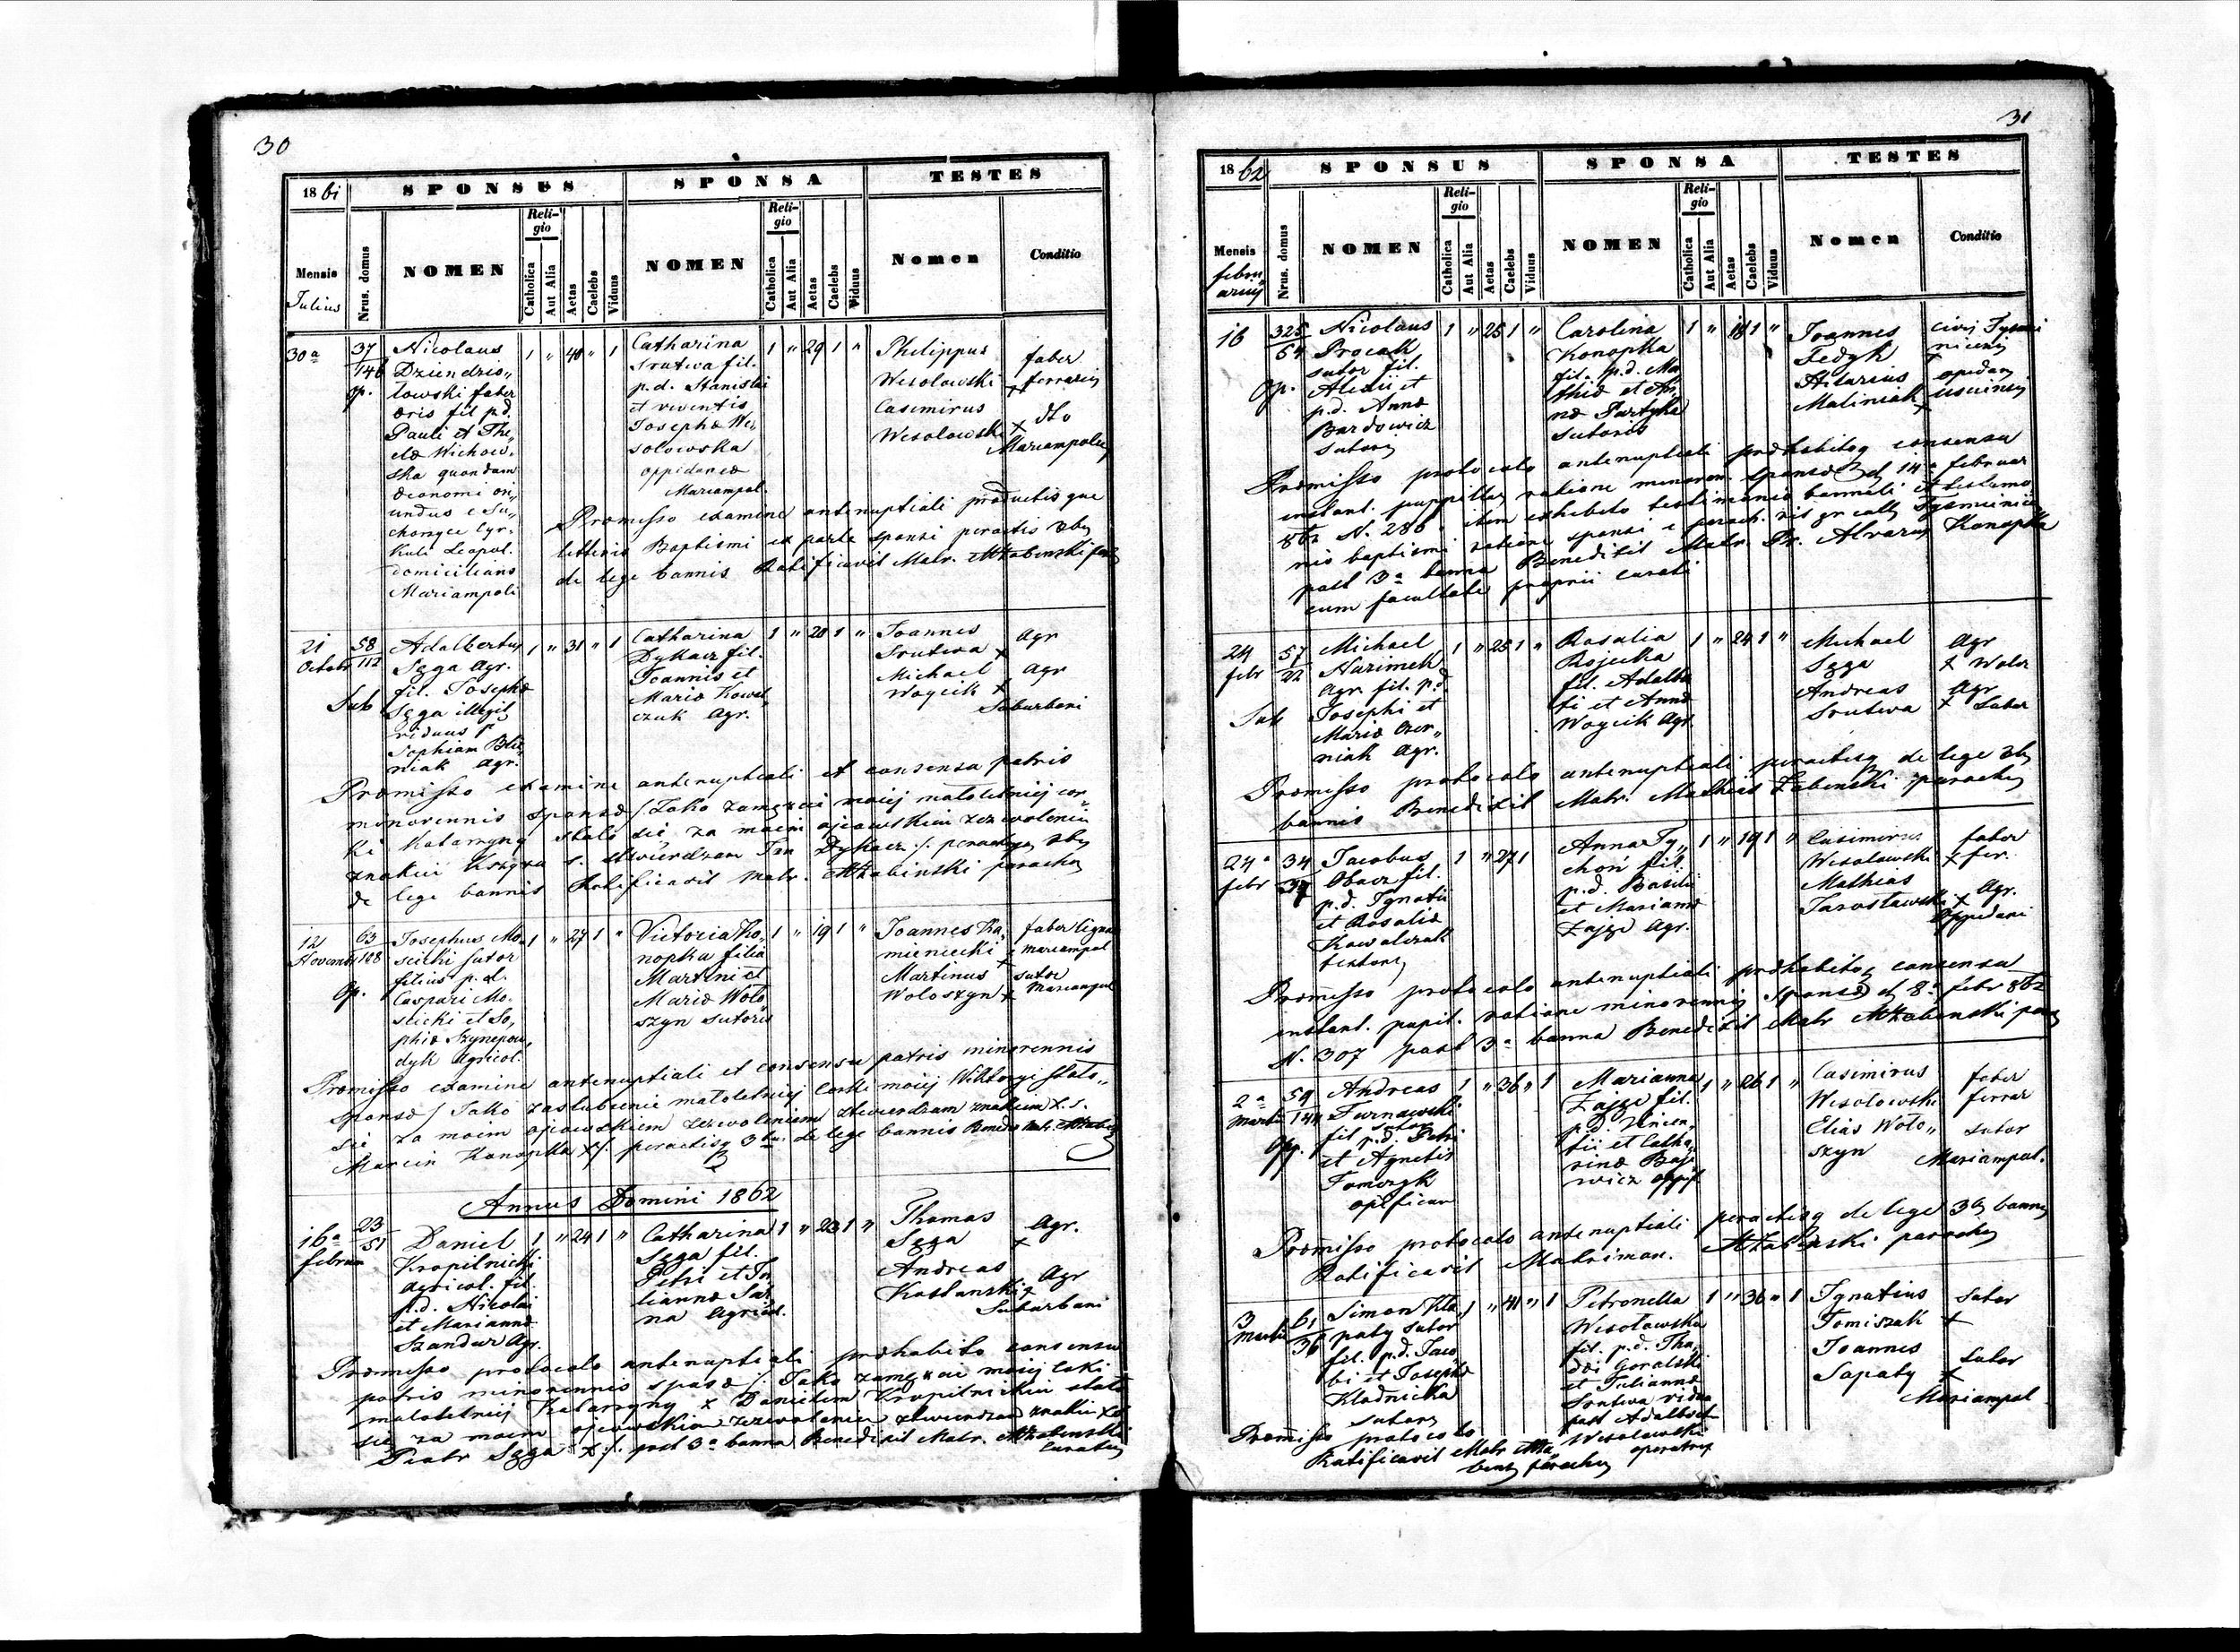 30
1861
SPONSUS
SPONSA
TESTES
Mensis
Julius
Nrus. domus
NOMEN
Religio
Catholica
Aut Alia
Aetas
Caelebs
Viduus
NOMEN
Religio
Catholica
Aut Alia
Aetas
Caelebs
Viduus
Nomen
Conditio
30a
37
146
op.
Nicolaus
Dziendzio„
lowski faber
fil p.d.
Pauli et The„
Wichow„
ska quondam
oeconomi ori„
undus e Su„
Cyr.
Leopol.
domicilians
Mariampoli
1 " 40 " 1
Catharina
Srutwa fil.
p.d. Stanislai
et viventis
Josephæ We„
solowska
oppidaneæ
Mariampol.
1 " 29 1 "
Philippus
Wesolowski x
Casimirus
Wesolowski x
faber
ferrarius
dto
Mariampoles
Præmisso examine antenuptiali productis que
litteris Baptismi ex parte sponsi peractis 3bus
de lege bannis Ratificavit Matr. MŻabinski par
21
Octobr
58
112
Sub
Adalbertus
Sęga Agr.
fil. Josephæ
Sęga illegit
viduus p
Sophiam Bli„
niak Agr.
1 " 31 " 1
Catharina
Dykacz fil.
Joannis et
Mariæ Kowal„
czuk Agr.
1 " 20 1 "
Joannes
Srutwa x
Michael
Woycik x
Agr
Agr
Suburbani
Præmisso examine antenuptiali et consensu patris
minorennis sponsæ /: Jako zamęzcie moiej małoletniej cor„
ki Katarzyny stało się za moim ojcowskim zezwoleniem
znakiem krzyza s. stwierdzam Jan Dykacz :/ peractisq 3bus
de lege bannis Ratificavit Matr. MŻabinski parochus
12
Novembr
63
108
Op.
Josephus Mo„
scicki sutor
filius p.d.
Caspari Mo„
scicki et So„
phiæ
dyk Agricol.
1 " 27 1 "
Victoria Ko„
nopka filia
Martini et
Mariæ Woło
szyn sutoris
1 " 19 1 "
Joannes Ka„
mieniecki x
Martinus
Woloszyn x
faber lignar
Mariampol
sutor
Mariampol
Præmisso examine antenuptiali et consensu patris minorennis
sponsæ / Jako zaslubienie małoletniej Corki moiej Wiktoryi stało„
się za moim ojcowskiem zezwoleniem stwierdzam znakiem X. s.
Marcin Konopka x/: peractisq 3bus de lege bannis Bened. Matr. MŻabin
Annus Domini 1862
16a
februar
23
51
Daniel
Kropilnicki
agricol. fil.
p.d. Nicolai
et Mariannæ
Szandur Agr.
1 " 24 1 "
Catharina
Sęga fil.
Petri et Ju„
liannæ Sar„
na Agricol.
1 " 23 1 "
Thomas
Sęga x
Andreas
Kaslunski x
Agr.
Agr
Suburbani
Præmisso protocolo antenuptiali præhabito consensu
patris minorennis spæ /: Jako zamęzcie moiej Corki
małoletniej Katarzyny z Danielem Kropilnickim stało
się za moim ojcowskim zezwoleniem stwierdzam znakiem X s
Piotr Sęga x/: post 3a banna Benedixit Matr. MŻabinski
Curatus
31
1862
SPONSUS
SPONSA
TESTES
Mensis
febru
arius
Nrus. domus
NOMEN
Religio
Catholica
Aut Alia
Aetas
Caelebs
Viduus
NOMEN
Religio
Catholica
Aut Alia
Aetas
Caelebs
Viduus
Nomen
Conditio
16
325
54
Op.
Nicolaus
Procak
sutor fil.
Alexii et
p.d. Annæ
Bardowicz
sutoris
1 " 25 1 "
Carolina
Konopka
fil. p.d. Ma
thiæ et An„
næ Partyka
sutoris
1 " 18 1 "
Joannes
Fedyk
Hilarius
Maliniak x
civis Tysmie
nicensis
x
opidan
Præmisso protocolo antenuptiali præhabitoq consensu
instant. puppillar ratione minoren sponsæ d 14a februar
862 N. 286 item exhibito testimonio bannali et testimo
nio baptismi ratione sponsi e paroch. rit gr cath Tysmenicen
post 3a banna Benedixit Matr. Pr. Alvarus Konopka
cum facultate proprii curati
24
febr
57
22
Sub
Michael
Nazimek
Agr. fil. p.d.
Josephi et
Mariæ Czer„
niak Agr.
1 " 25 1 "
Rosalia
Rojecka
fil. Adalb
ti et Annæ
Woycik Agr.
1 " 24 1 "
Michael
Sęga
Andreas
Srutwa
Agr
x Wolcz
Agr
x Subur
Præmisso protocolo antenuptiali peractisq de lege 3bus
bannis Benedixit Matr. Mathias Żabinski parochus
24a
febr
34
37
Jacobus
Obacz fil.
p.d. Ignatii
et Rosaliæ
Kowalczuk
textoris
1 " 27 1
Anna Ty„
choń fil.
p.d. Basilii
et Mariannæ
Zając Agr.
1 " 19 1 "
Casimirus
Wesolowski
Mathias
Jarosławski x
faber
x fer.
Agr.
Oppidani
Præmisso protocolo antenuptiali præhabitoq consensu
instant. pupil. ratione minorennis sponsæ d 8a febr 862
N. 307 post 3a banna Benedixit Matr MŻabinski paro
2a
Martii
59
144
Op.
Andreas
Turnawski
sutor
fil p.d. Petri
et Agnetis
Tomczyk
opificum
1 " 36 " 1
Marianna
Zając fil.
p.d. Vincen„
tii et Catha„
rinæ Baje
wicz opif.
1 " 26 1 "
Casimirus
Wesolowski
Elias Woło„
szyn
faber
ferrar
sutor
Mariampol.
Præmisso protocolo antenuptiali peractisq de lege 3b bannis
Ratificavit Matrimon. MŻabinski parochus
3
Martii
61
36
Simon Kła„
paty sutor
fil. p.d. Jaco
bi et Josephæ
Kladnicka
sutoris
1 " 41 " 1
Petronella
Wesołowska
fil. p.d. Tha„
dæi Goralski
et Juliannæ
Srutwa vidua
post Adalbert
Wesolowski
operatrix
1 " 36 " 1
Ignatius
Tomiszak
Joannes
Sapaty x
sutor
x
sutor
Mariampol
Præmisso protocolo
Ratificavit Matr MŻa„
binski parochus